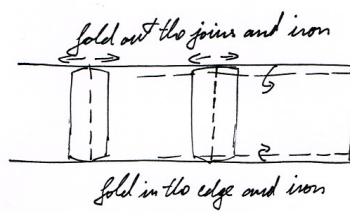 fold out the joins and iron
fold in the edge and iron